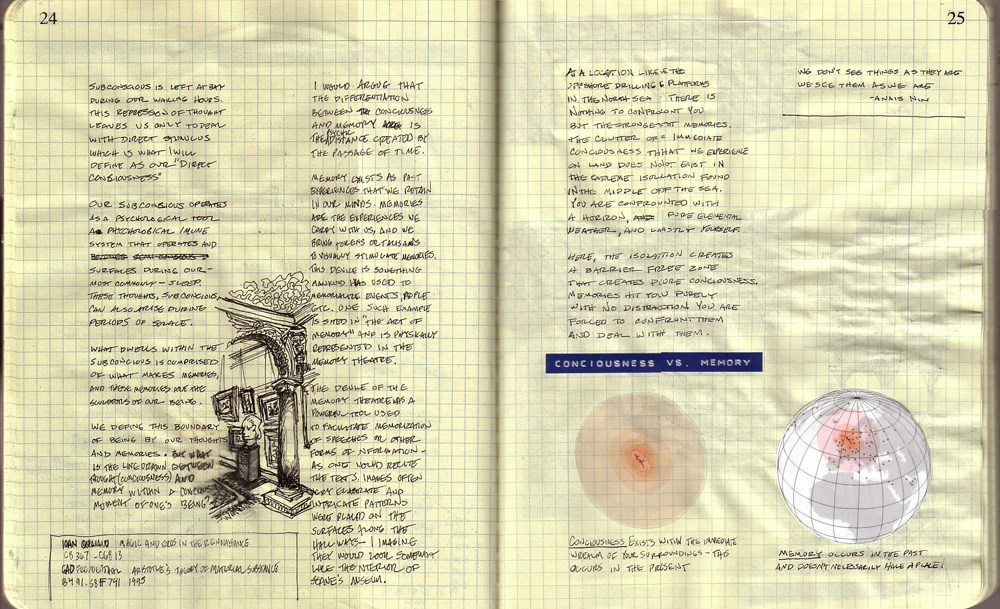 24
SUBCONSCIOUS IS LEFT AT BAY
DURING OUR WAKING HOURS.
THIS REPRESSION OF THOUGHT
LEAVES US ONLY TO DEAL
WITH DIRECT STIMULUS
WHICH IS WHAT I WILL
DEFINE AS OUR "DIRECT
CONSIOUSNESS"
OUR SUBCONSIOUS OPERATES
AS A PSYCHOLOGICAL TOOL
A PSYCHOLOGICAL IMUNE
SYSTEM THAT OPERATES AND
SURFACES DURING OUR-
MOST COMMONLY - SLEEP.
THESE THOUGHTS, SUBCONSIOUS,
CAN ALSO ARISE DURING
PERIODS OF SOLACE.
WHAT DWELLS WITHIN THE
SUBCONCIOUS IS COMPRISED
OF WHAT MAKES MEMORIES,
AND THESE MEMORIES ARE THE
SCULPTORS OF OUR BEING.
WE DEFINE THIS BOUNDARY
OF BEING BY OUR THOUGHTS
AND MEMORIES. BUT WHAT
IS THE LINE DRAWN BETWEEN
THOUGHT (CONCIOUSNESS) AND
MEMORY WITHIN A CONCIOUS
MOMENT OF ONE'S BEING?
MAGIC AND EROS IN THE RENNAISANCE
CB 367 -C6813
ARISTOTLE'S THEORY OF MATERIAL SUBSTANCE
B491.S8 F741 1995
I WOULD ARGUE THAT
THE DIFFERENTIATION
BETWEEN CONCIOUSNESS
AND MEMORY IS
THE PSYCHIC DISTANCE CREATED BY
THE PASSAGE OF TIME.
MEMORY EXISTS AS PAST
EXPERIENCES THAT WE RETAIN
IN OUR MINDS. MEMORIES
ARE THE EXPERIENCES WE
CARRY WITH US, AND WE
BRING TOKENS OR TALISMANS
TO VISUALLY STIMULATE MEMORIES.
THIS DEVICE IS SOMETHING
MANKIND HAS USED TO
MEMORIALIZE EVENTS, PEOPLE
ETC. ONE SUCH EXAMPLE
IS SITED IN "THE ART OF
MEMORY" AND IS PHYSICALLY
REPRESENTED IN THE
MEMORY THEATRE.
THE DEVICE OF THE
MEMORY THEATRE WAS A
POWERFUL TOOL USED
TO FACILITATE MEMORIZATION
OF SPEECHES OR OTHER
FORMS OF INFORMATION -
AS ONE WOULD RECITE
THE TEXTS, IMAGES OFTEN
VERY ELABORATE AND
INTRICATE PATTERNS
WERE PLACED ON THE
SURFACES ALONG THE
HALL WAYS - I IMAGINE
THEY WOULD LOOK SOMEWHAT
LIKE THE INTERIOR OF
SOANE'S MUSEUM.
25
AT A LOCATION LIKE THE
OFFSHORE DRILLING PLATFORMS
IN THE NORTH SEA THERE IS
NOTHING TO CONFRONT YOU
BUT THE STRONGEST MEMORIES.
THE CLUTTER OF IMMEDIATE
CONCIOUSNESS THAT WE EXPERIENCE
ON LAND DOES NOT EXIST IN
THE EXTREME ISOLLATION FOUND
IN THE MIDDLE OFF THE SEA.
YOU ARE CONFRONTED WITH
A HORIZON, PURE ELEMENTAL
WEATHER, AND LASTLY YOURSELF.
HERE, THE ISOLATION CREATES
A BARRIER FREE ZONE
THAT CREATES PURE CONCIOUSNESS.
MEMORIES HIT YOU PURELY
WITH NO DISTRACTION YOU ARE
FORCED TO CONFRONT THEM
AND DEAL WITH THEM.
WE DON'T SEE THINGS AS THEY ARE
WE SEE THEM AS WE ARE
-ANAIS NIN
CONCIOUSNESS VS. MEMORY
CONCIOUSNESS EXISTS WITHIN THE IMMEDIATE
REALM OF YOUR SURROUNDINGS - THIS
OCCURS IN THE PRESENT
MEMORY OCCURS IN THE PAST
AND DOESN'T NECESSARILY HAVE A PLACE.